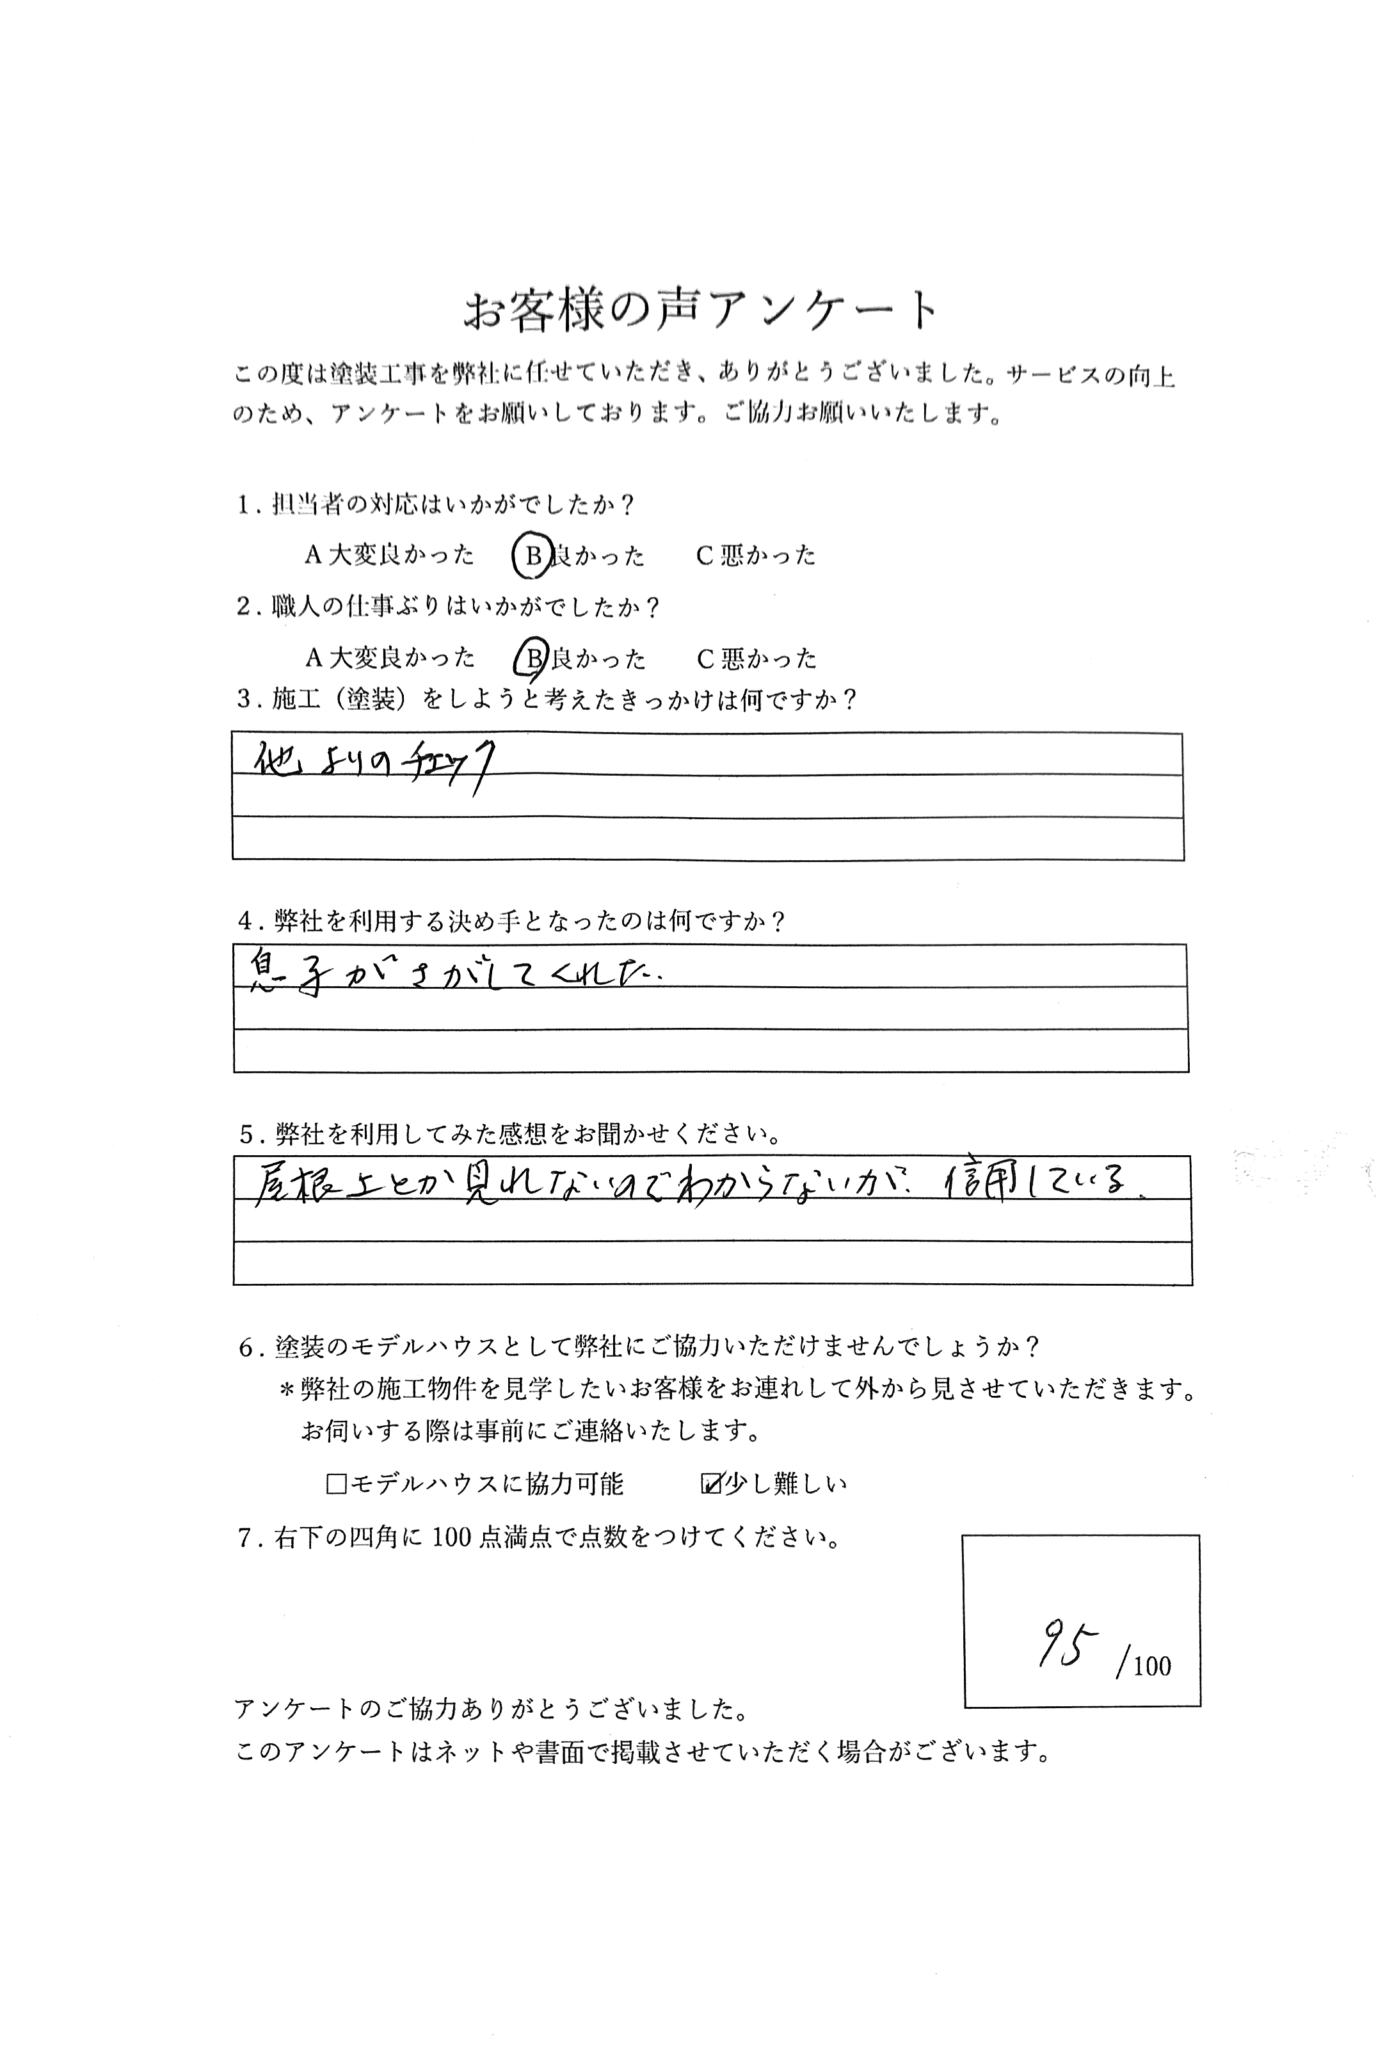 お客様の声アンケート
この度は塗装工事を弊社に任せていただき、ありがとうございました。サービスの向上
のため、アンケートをお願いしております。ご協力お願いいたします。
1．担当者の対応はいかがでしたか？
A 大変良かった　B 良かった　C 悪かった
2．職人の仕事ぶりはいかがでしたか？
A 大変良かった　B 良かった　C 悪かった
3．施工（塗装）をしようと考えたきっかけは何ですか？
他よりのチェック
4．弊社を利用する決め手となったのは何ですか？
息子がさがしてくれた．
5．弊社を利用してみた感想をお聞かせください。
屋根上とか見れないのでわからないが、信用している．
6．塗装のモデルハウスとして弊社にご協力いただけませんでしょうか？
＊弊社の施工物件を見学したいお客様をお連れして外から見させていただきます。
お伺いする際は事前にご連絡いたします。
□モデルハウスに協力可能　☑少し難しい
7．右下の四角に 100 点満点で点数をつけてください。
95 /100
アンケートのご協力ありがとうございました。
このアンケートはネットや書面で掲載させていただく場合がございます。